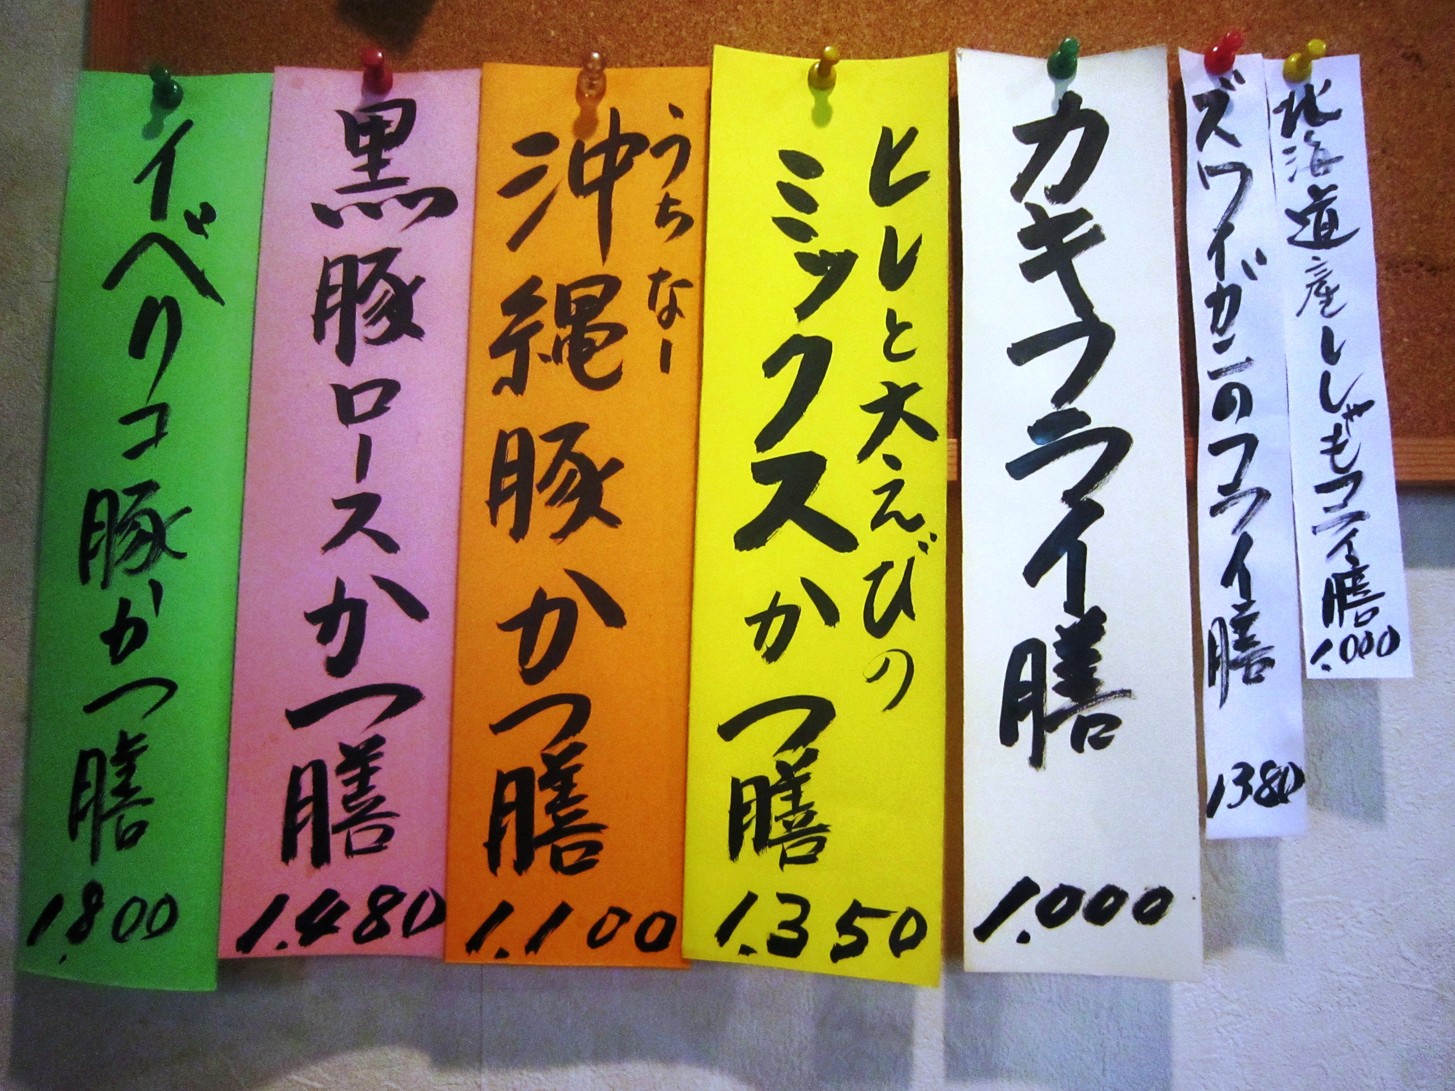 北海道産ししゃもフライ膳
1.000
ズワイガニのフライ膳
1380
カキフライ膳
1.000
ヒレと大えびの
ミックスかつ膳
1.350
うちなー
沖縄豚かつ膳
1.100
黒豚ロースかつ膳
1.480
イベリコ豚かつ膳
1.800